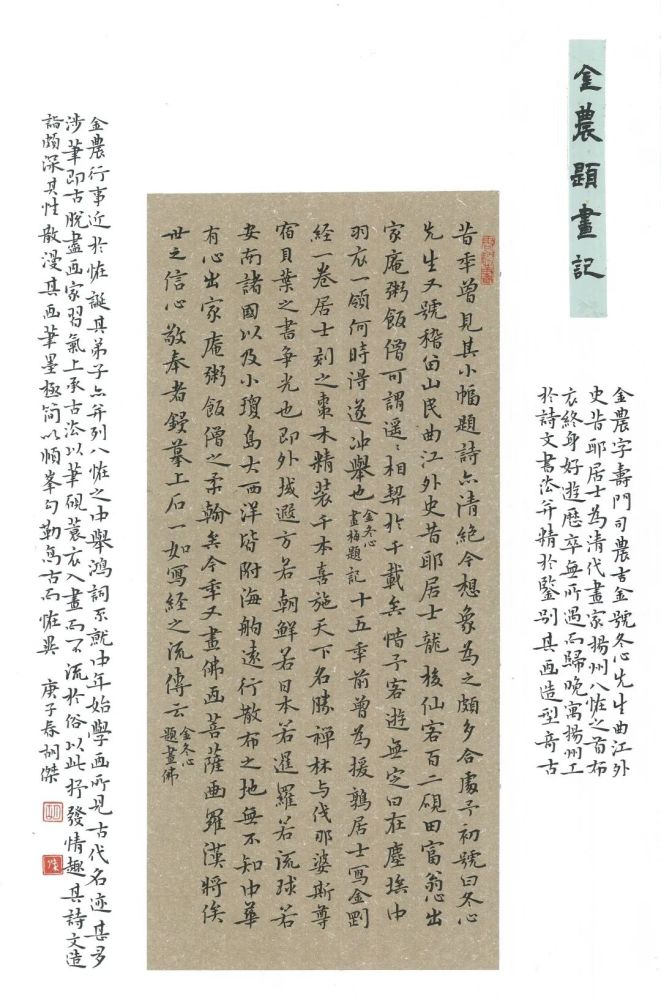 金農題畫記
金農字壽門司農吉金號冬心先生曲江外
史昔耶居士為清代畫家揚州八怪之首布
衣終身好遊歷卒無所遇而歸晚寓揚州工
於詩文書法并精於鑒别其画造型奇古
昔年曾見其小幅題詩亦清絕今想象為之頗多合處予初號曰冬心
先生又號稽留山民曲江外史昔耶居士龍梭仙客百二硯田富翁心出
家庵粥飯僧可謂遥遥相契於千載矣惜予客遊無定日在塵埃中
羽衣一領何時得遂冲舉也金冬心畫梅題記十五年前曾為援鶉居士寫金剛
経一卷居士刻之棗木精装千本喜施天下名勝禅林与伐那婆斯尊
宿貝葉之書争光也即外域遐方若朝鮮若日本若暹羅若流球若
安南諸國以及小瓊島大西洋皆附海舶遠行散布之地無不知中華
有心出家庵粥飯僧之柔翰矣今年又畫佛画菩薩画羅漢將俟
世之信心敬奉者鋟摹上石一如寫経之流傳云金冬心題畫佛
金農行事近於怪誕其弟子亦并列八怪之中舉鴻詞不就中年始學画所見古代名迹甚多
涉筆即古脫盡画家習氣上承古法以筆硯蓑衣入畫而不流於俗以此抒發情趣其詩文造
詣頗深其性散漫其画筆墨極简以順峯勾勒為古而怪異 庚子春訓傑